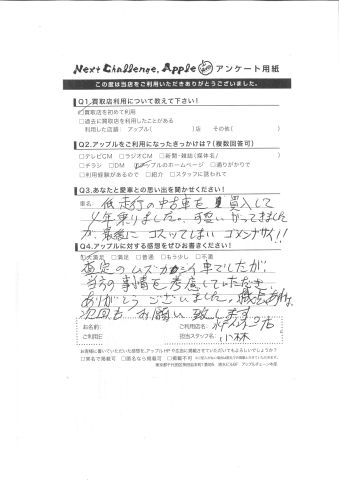 Next Challenge. Apple アンケート用紙
この度は当店をご利用いただきありがとうございました。
Q1.買取店利用について教えて下さい！
☑買取店を初めて利用
□過去に買取店を利用したことがある
利用した店舗： アップル( )店 その他( )
Q2.アップルをご利用になったきっかけは？(複数回答可)
□テレビCM □ラジオCM □新聞・雑誌(媒体名/ )
□チラシ □DM ☑アップルのホームページ □通りがかりで
□利用経験があるので □紹介 □スタッフに誘われて
Q3.あなたと愛車との思い出を聞かせください！
車名: 低走行の中古車を購入して
4年乗りました。可愛いがってきました
が、最後にコスッてしまいゴメンナサイ!!
Q4.アップルに対する感想をぜひお書きください！
☑大満足 □満足 □普通 □もう少し □不満
査定のムズカシイ車でしたが、
当方の事情を考慮していただき
ありがとうございました。機会あれば
次回もお願い致します
お名前: ご利用店名:
ご利用日 担当スタッフ名: 小林
お客様に書いていただいた感想を、アップルHPや広告に掲載させていただいてもよろしいでしょうか？
□実名で掲載可 □匿名なら掲載可 □掲載不可